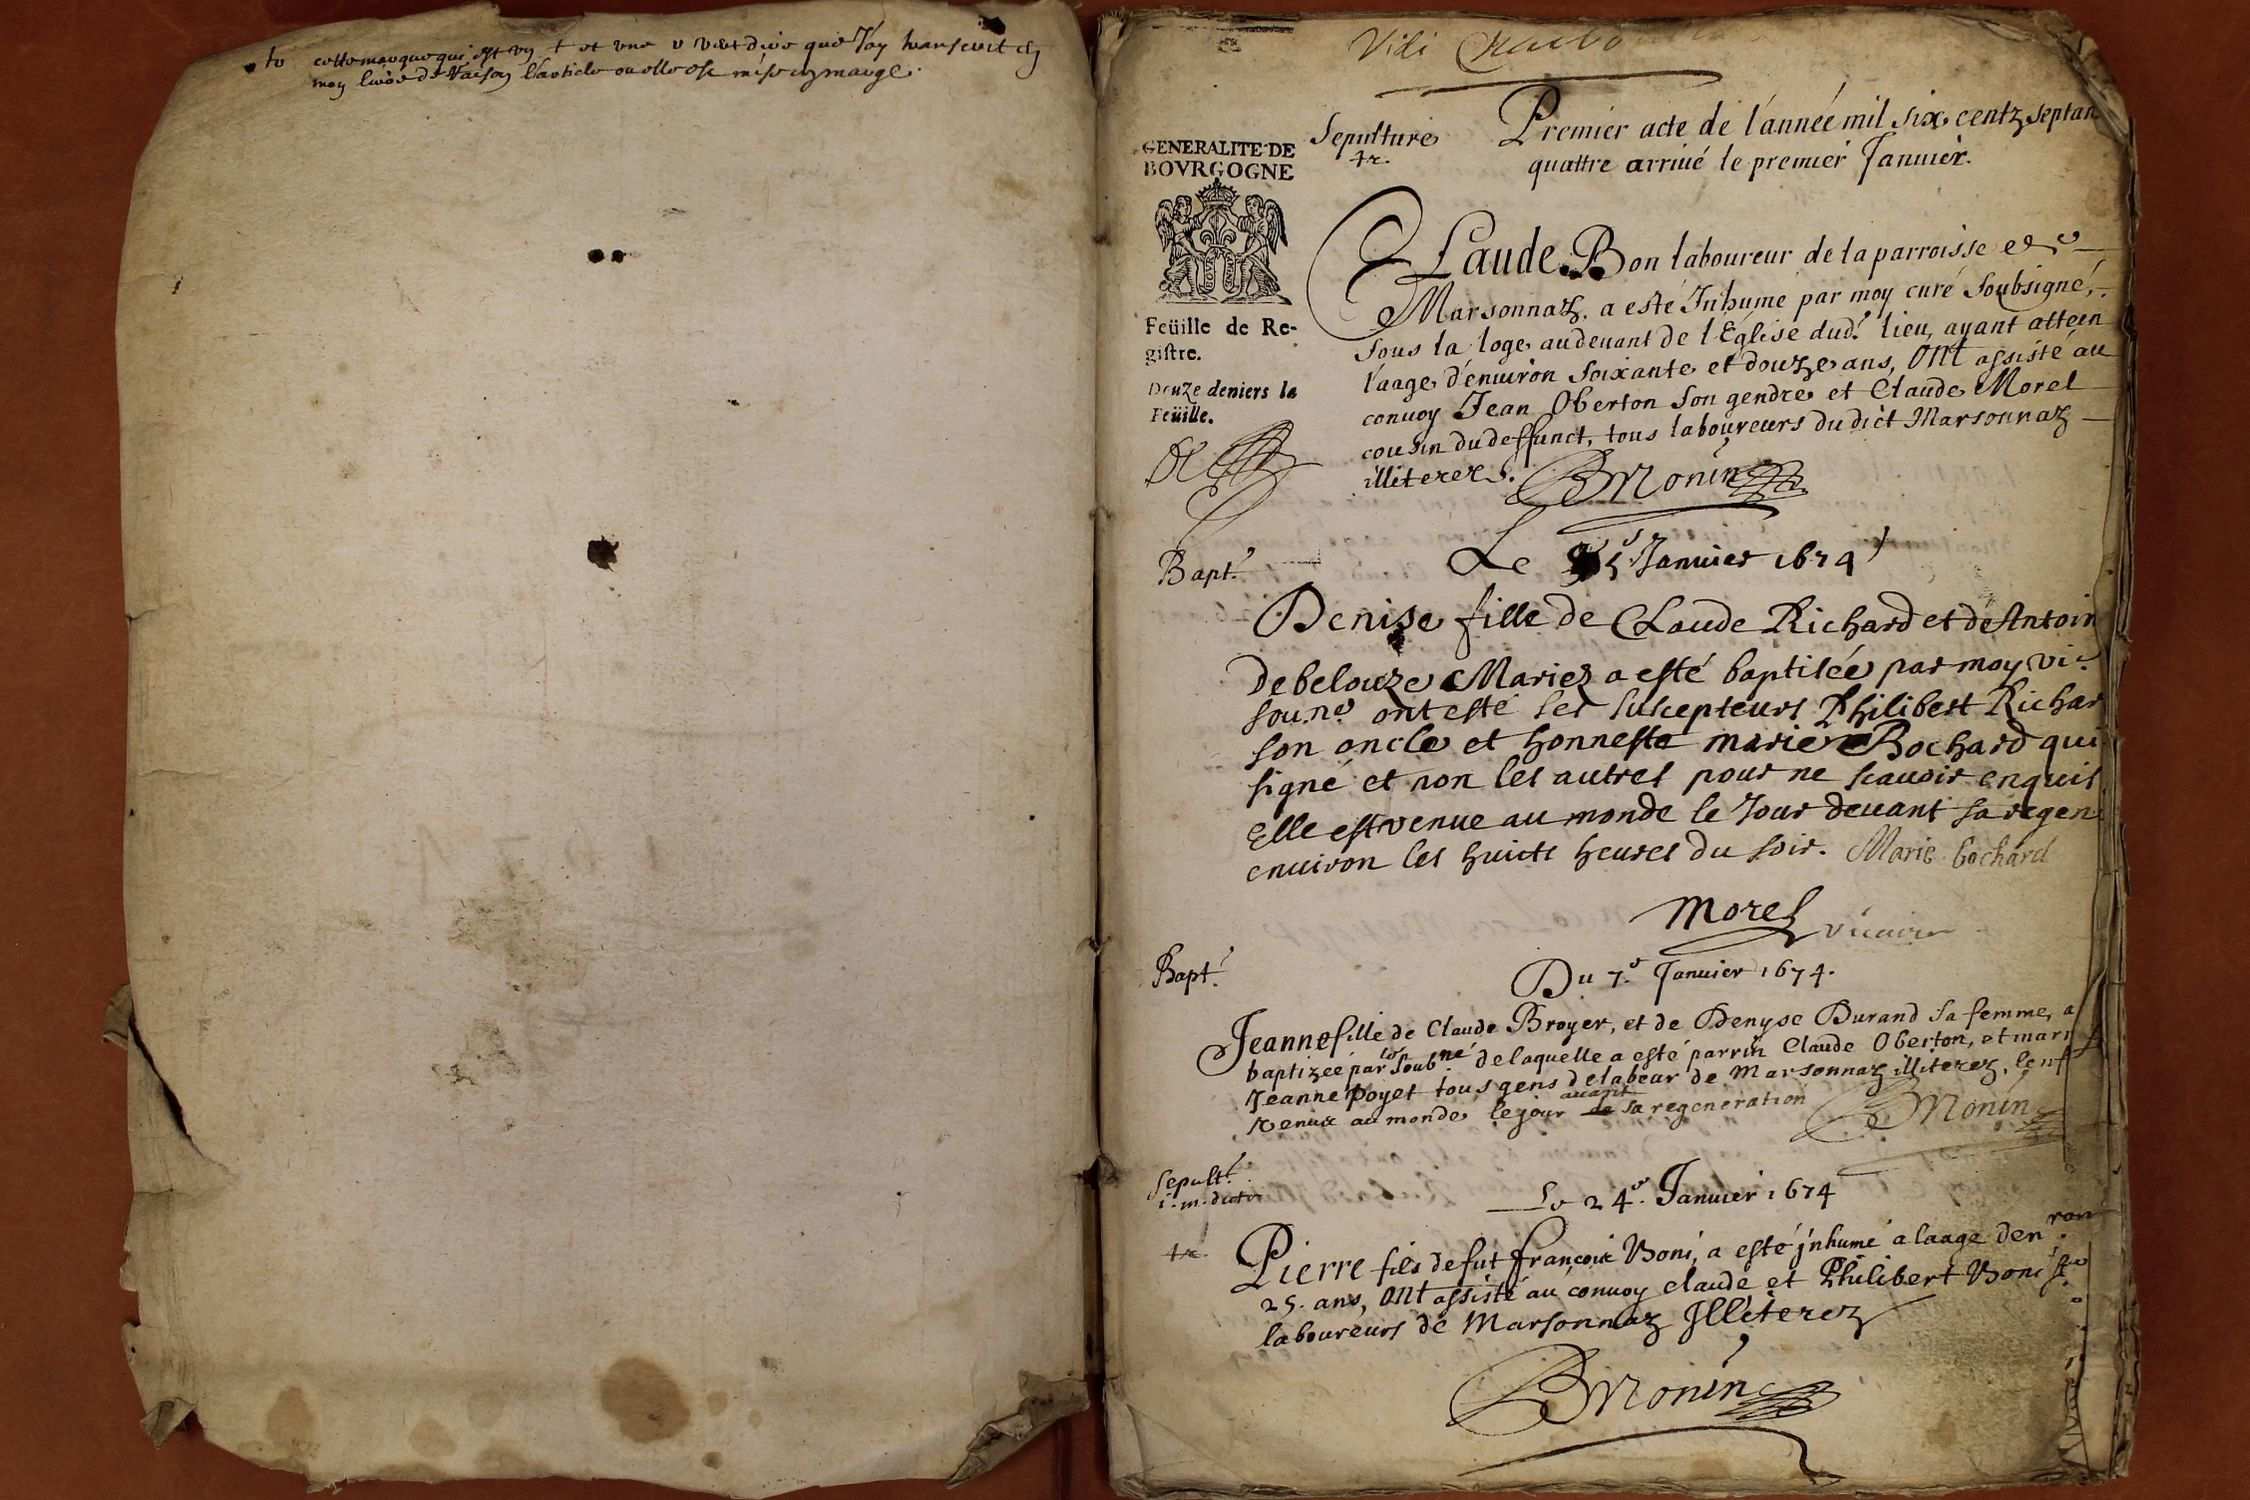 cette marque qui est un t et une v veut dire que J'ay transcrit en
mon livre de raison l'article ou elle est mise en marge.
Vidi
GENERALITE·DE
BOVRGOGNE
Feüille de Re-
gistre.
Douze deniers la
Feüille.
Sepulture
tr.
Premier acte de l'année mil six centz septan
quattre arriué le premier Januier.
Claude Bon laboureur de la parroisse de
Marsonnaz. a esté Inhume par moy curé soubsigné,
sous la loge audeuant de l'Eglise dud.t lieu, ayant attein
l'aage d'enuiron soixante et douze ans, Ont assisté au
conuoy Jean Oberton son gendre et Claude Morel
cousin du deffunct, tous laboureurs dudict Marsonnaz
illiterez.
BMonin
Bapt.
Le 5e Januier 1674
Denise fille de Claude Richard et de Antoin
debelouze Mariez a esté baptisée par moy vic.
sou.né ont esté les suscepteurs Philibert Richar
son oncle et honneste marie Bochard qui
signé et non les autres pour ne scauoir enquis
Elle est venue au monde le Jour deuant sa regen
enuiron les huict heures du soir. Marie bochard
Morel vicaire
Bapt.
Du 7.e Januier 1674.
Jeanne fille de Claude Broyer, et de Denyse Durand sa femme, a
baptizée par soubné de laquelle a esté parrin Claude Oberton, et marr
Jeanne Poyet tous gens de labeur de Marsonnaz illiterez, l'enf
venue au monde le jour auant sa regeneration
BMonin
Sepult.
tr.
Le 24.e Januier 1674
Pierre fils de fut françois Boni, a esté jnhumé a laage d'en ron
25. ans, Ont assisté au conuoy claude et Philibert Boni
laboureurs de Marsonnaz Jlliterez
BMonin